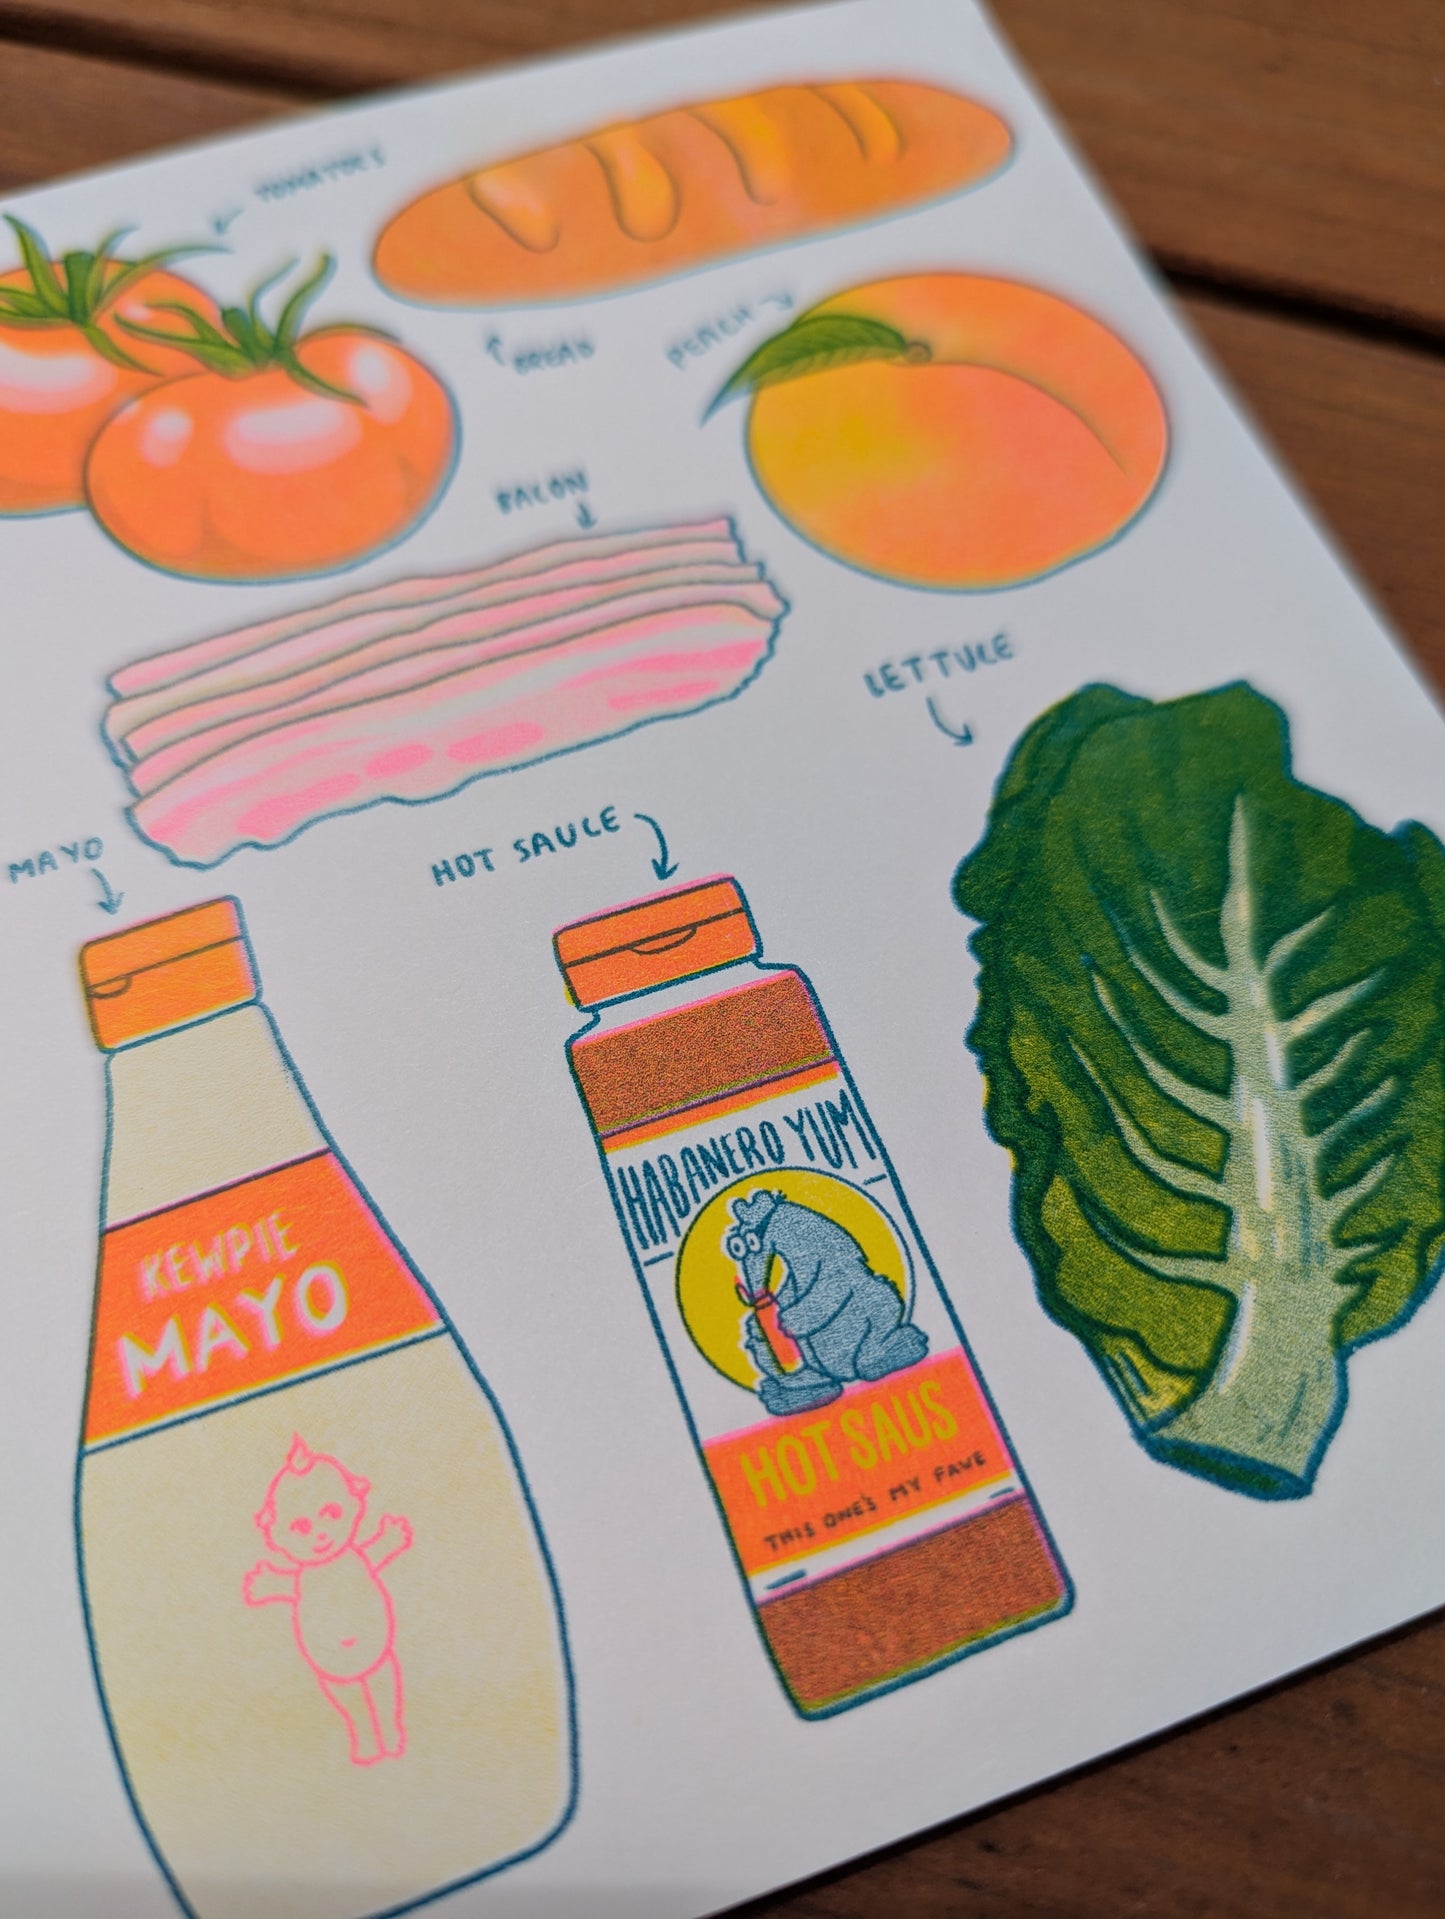 TOMATOES
BREAD
PEACH
BACON
LETTUCE
MAYO
HOT SAUCE
KEWPIE
MAYO
HABANERO YUM
HOT SAUS
THIS ONE'S MY FAVE